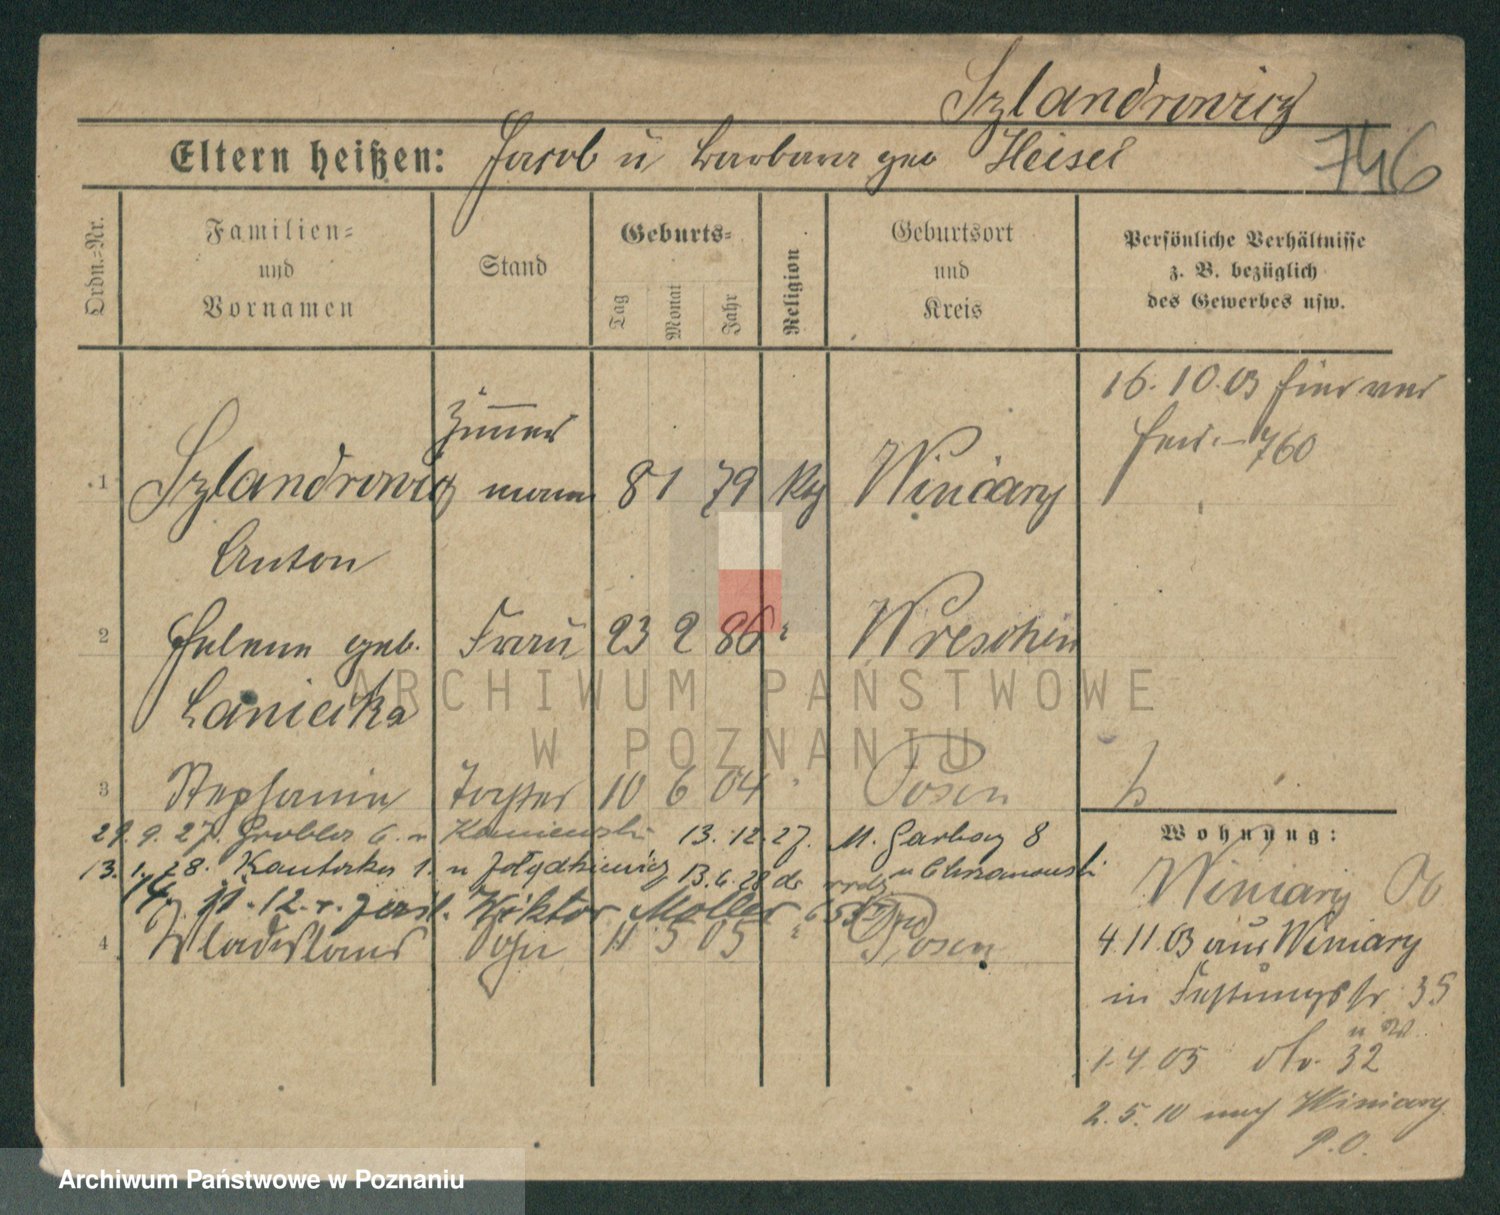 Szlandrowicz
Eltern heißen: Jacob u Barbara geb Heisel
746
Ordn.-Nr.
Familien-
und
Vornamen
Stand
Geburts-
Tag
Monat
Jahr
Religion
Geburtsort
und
Kreis
Persönliche Verhältnisse
z. B. bezüglich
des Gewerbes usw.
16.10.03
760
Zimmer
1 Szlandrowicz mann 8 1 79 ktg Winiary
Anton
2 Helene geb. Frau 23 2 86 " Wreschen
Laniecka
3 Stephanie Tochter 10 6 04 " Posen
29.9.27. Grobla 6. u Kamienski 13.12.27. M. Garbary 8
13.1.28. Kantaka 1. u 13.6.28 u Chrzanowski
14. 11.12. Wiktor Moller
4 Wladislaus Sohn 11 5 05 " Posen
Wohnung:
Winiary
4.11.03 aus Winiary
in Festungsstr 35
1.4.05 do. 32
2.5.10 nach Winiary
P.O.
ARCHIWUM PAŃSTWOWE
W POZNANIU
Archiwum Państwowe w Poznaniu